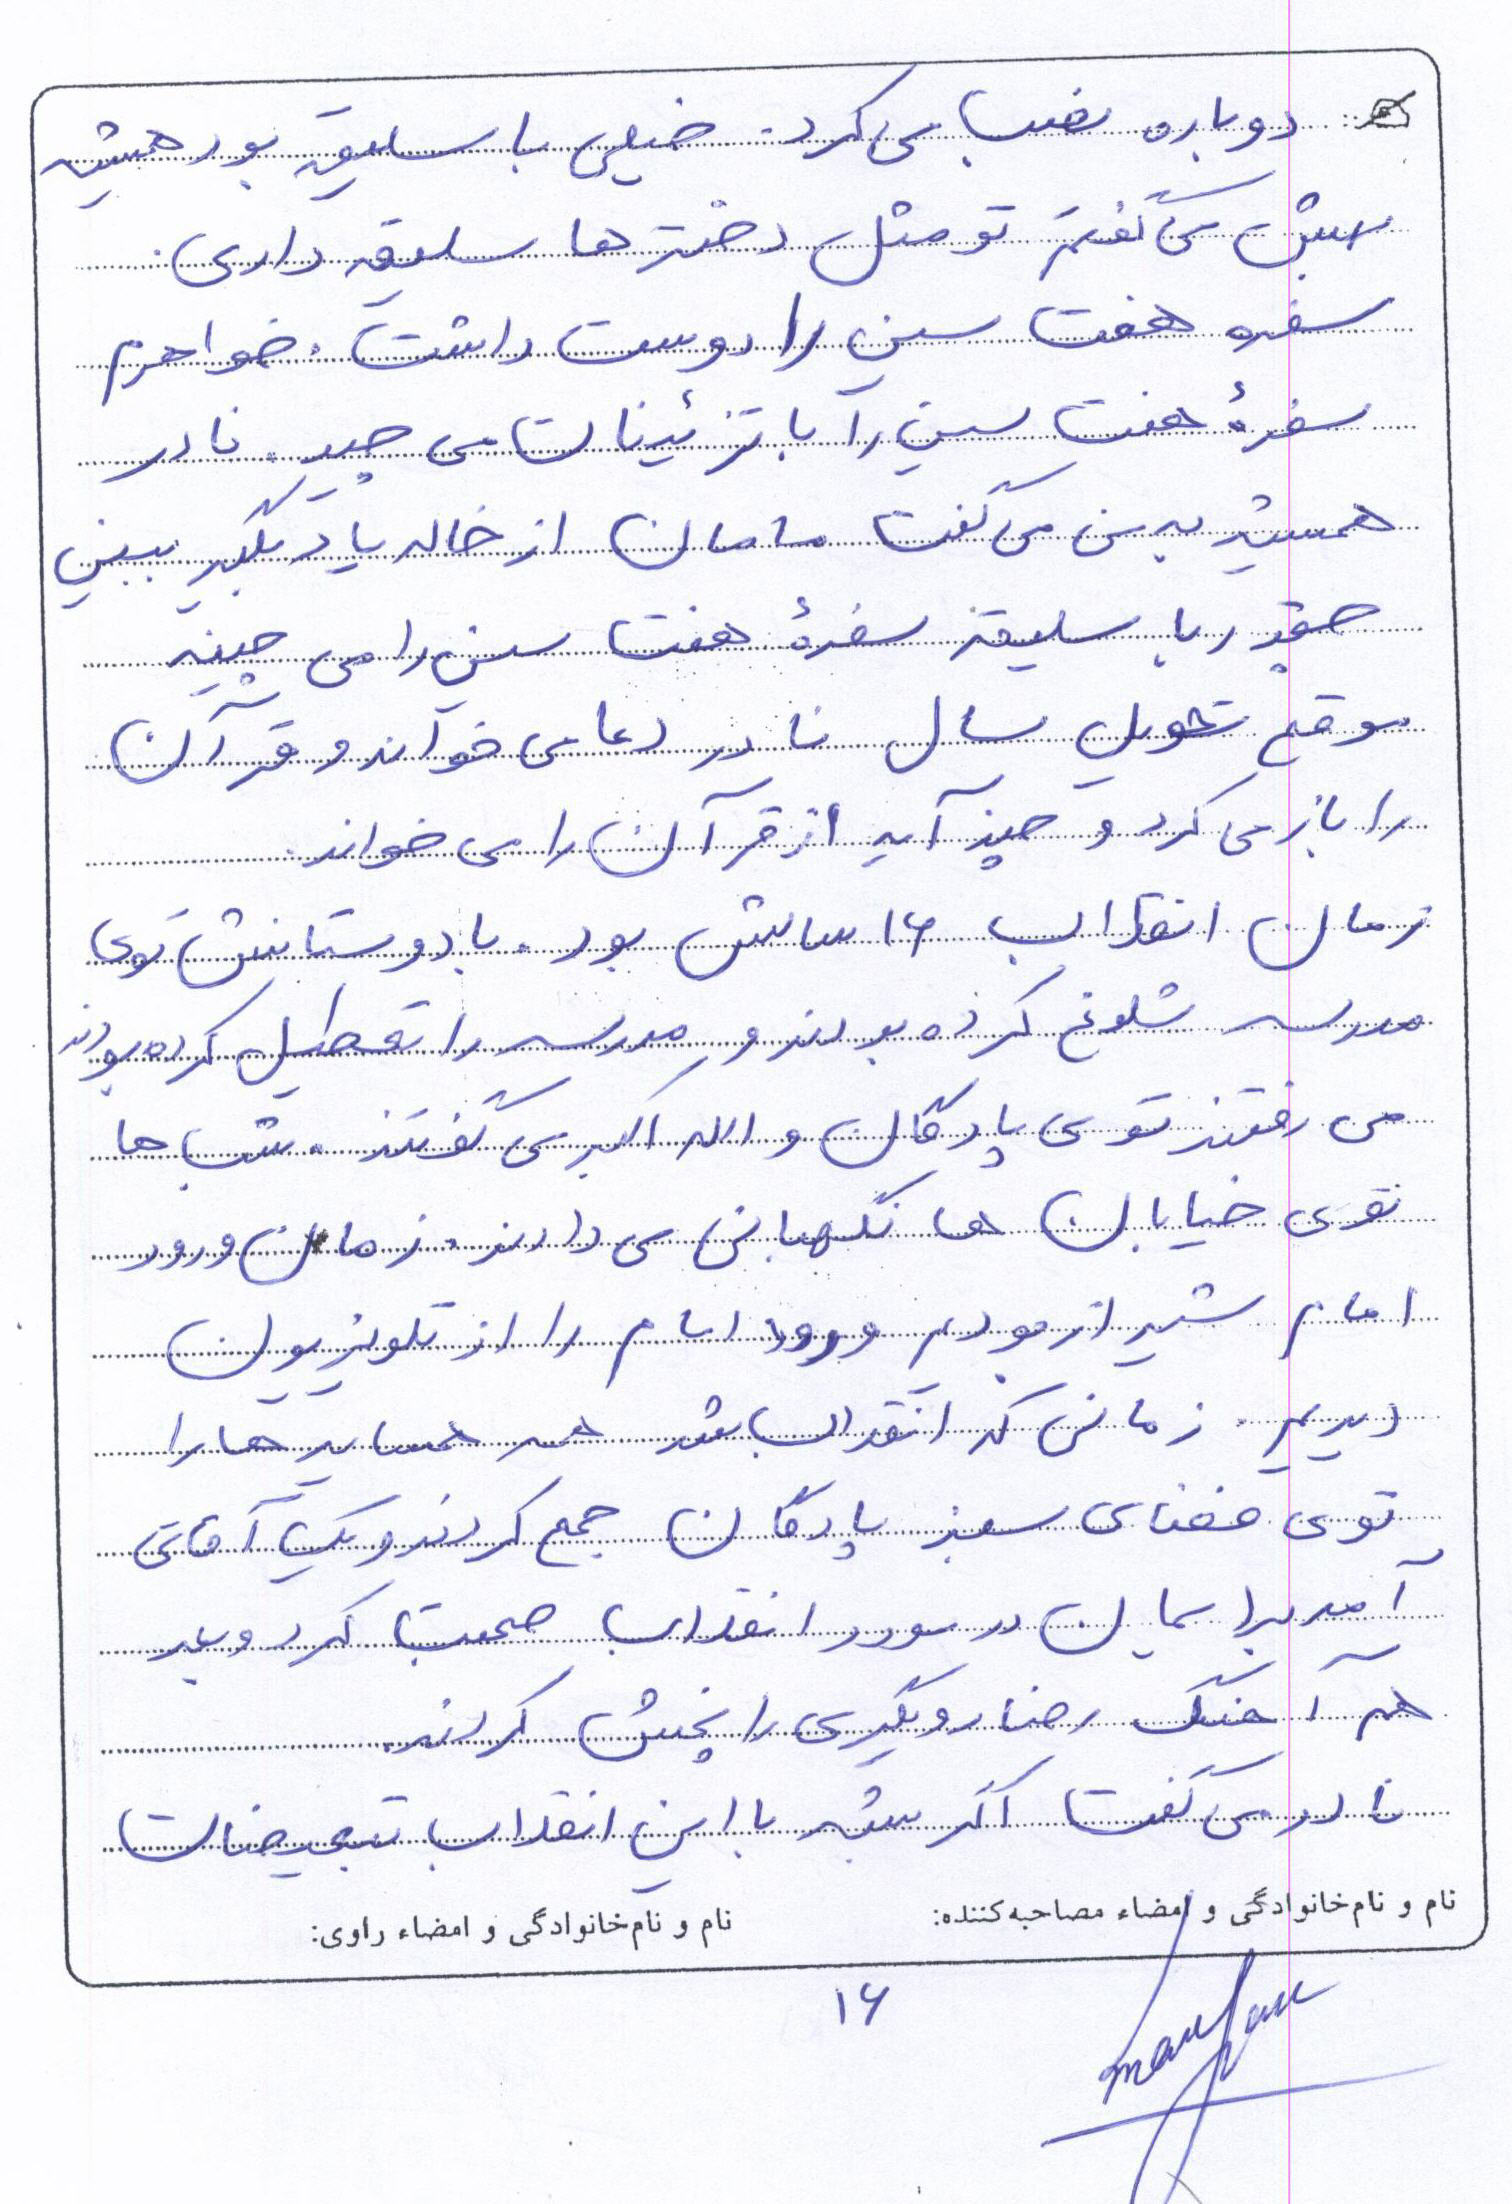 دوباره نصب می‌کرد. خیلی با سلیقه بود همیشه
بهش می‌گفتم تو مثل دخترها سلیقه داری.
سفره هفت سین را دوست داشت. خواهرم
سفرهٔ هفت سین را با تزئینات می چید. نادر
همیشه به من می‌گفت مامان از خاله یاد بگیر ببین
چقدر با سلیقه سفرهٔ هفت سین را می چینه
موقع تحویل سال نادر دعا می خواند و قرآن
را باز می کرد و چند آیه از قرآن را می خواند.
زمان انقلاب ۱۶ سالش بود. با دوستانش توی
مدرسه شلوغ کرده بودند و مدرسه را تعطیل کرده بودند
می رفتند توی پادگان و الله اکبر می گفتند. شب ها
توی خیابان ها نگهبانی می دادند. زمان ورود
امام شیراز بودیم ورود امام را از تلویزیون
دیدیم. زمانی که انقلاب شد همه همسایه ها را
توی فضای سبز پادگان جمع کردند و یک آقائی
آمد برایمان در مورد انقلاب صحبت کرد و بعد
هم آهنگ رضا رویگری را پخش کردند.
نادر می گفت اگر بشه با این انقلاب تبعیضات
نام و نام‌خانوادگی و امضاء مصاحبه‌کننده: نام و نام‌خانوادگی و امضاء راوی:
۱۶